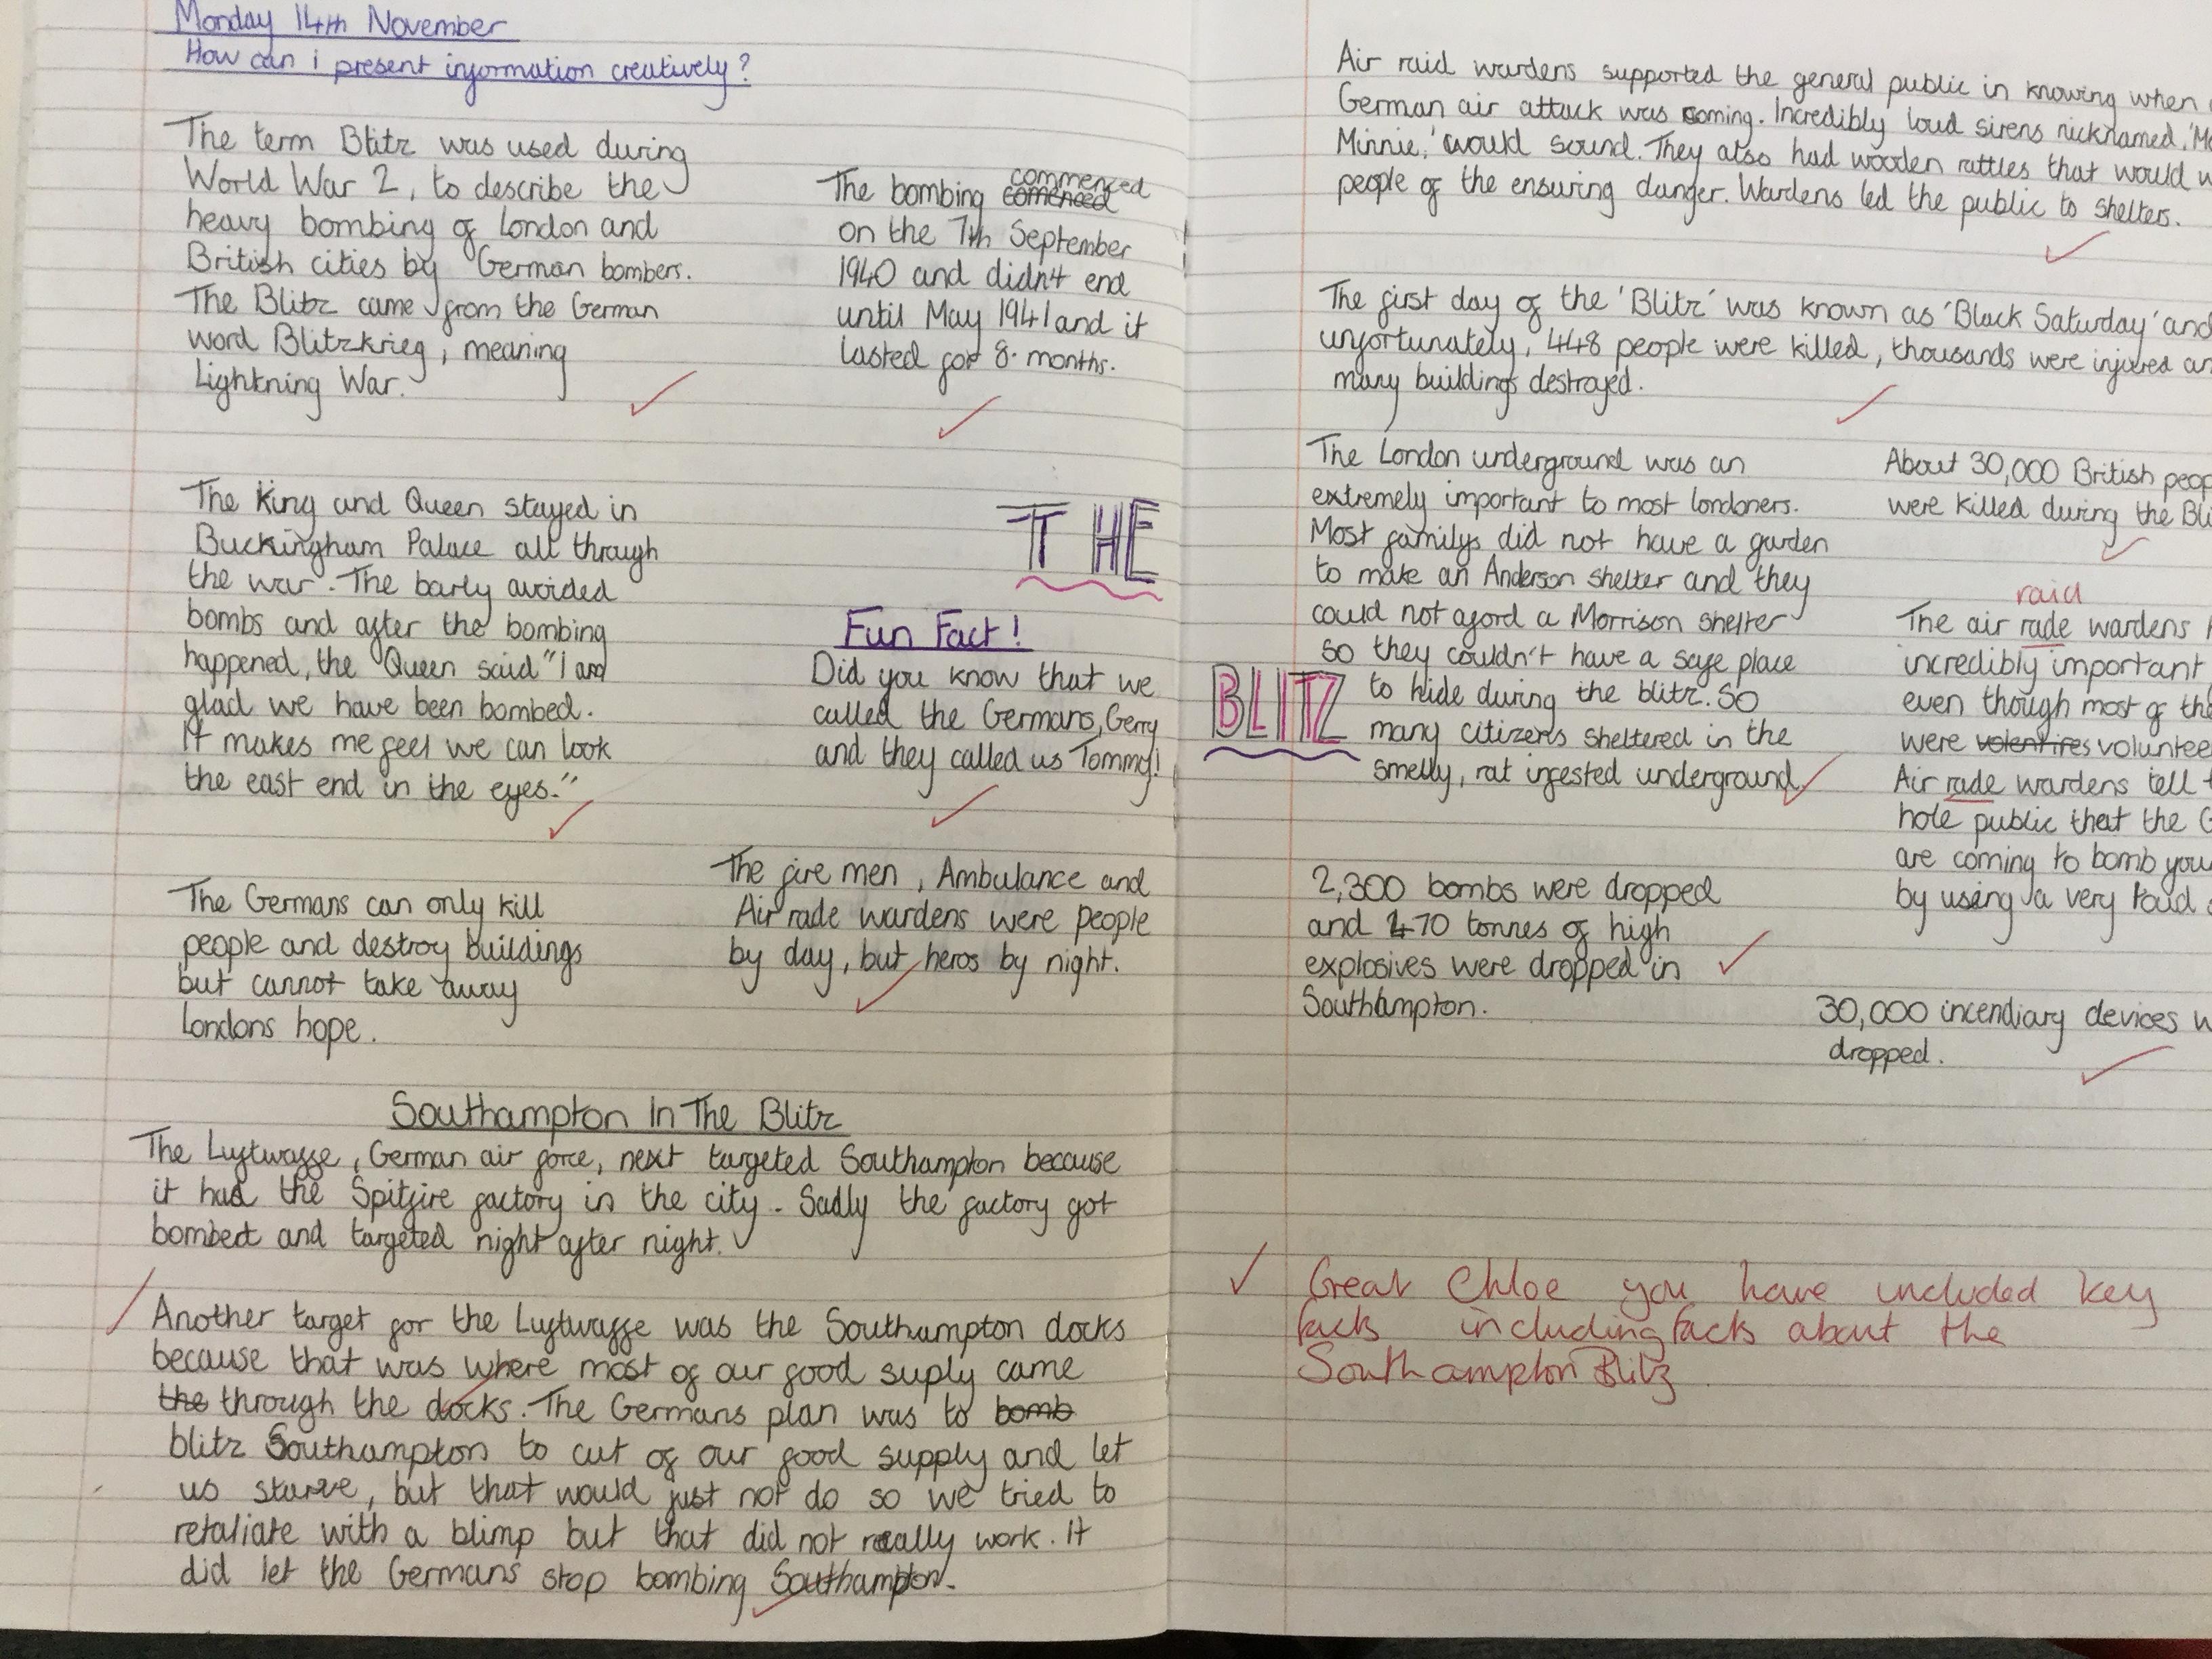 Monday 14th November
How can i present information creatively?
The term Blitz was used during
World War 2, to describe the
heavy bombing of London and
British cities by German bombers.
The Blitz came from the German
word Blitzkrieg, meaning
Lightning War.
The bombing comenced commenced
on the 7th September
1940 and didn't end
until May 1941 and it
lasted for 8 months.
The King and Queen stayed in
Buckingham Palace all through
the war. The barly avoided
bombs and after the bombing
happened, the Queen said "I am
glad we have been bombed.
It makes me feel we can look
the east end in the eyes."
THE
Fun Fact!
Did you know that we
called the Germans, Gerry
and they called us Tommy!
The Germans can only kill
people and destroy buildings
but cannot take away
Londons hope.
The fire men, Ambulance and
Air rade wardens were people
by day, but heros by night.
Southampton In The Blitz
The Luftwaffe, German air force, next targeted Southampton because
it had the Spitfire factory in the city. Sadly the factory got
bombed and targeted night after night.
Another target for the Luftwaffe was the Southampton docks
because that was where most of our food suply came
the through the docks. The Germans plan was to bomb
blitz Southampton to cut of our food supply and let
us starve, but that would just not do so we tried to
retaliate with a blimp but that did not really work. It
did let the Germans stop bombing Southampton.
Air raid wardens supported the general public in knowing when
German air attack was coming. Incredibly loud sirens nicknamed,
Minnie,' would sound. They also had wooden rattles that would
people of the ensuring danger. Wardens led the public to shelters.
The first day of the 'Blitz' was known as 'Black Saturday' and
unfortunately, 448 people were killed, thousands were injured
many buildings destroyed.
The London underground was an
extremely important to most londoners.
Most familys did not have a garden
to make an Anderson shelter and they
could not aford a Morrison shelter
so they couldn't have a safe place
to hide during the blitz. So
many citizens sheltered in the
smelly, rat infested underground.
BLITZ
About 30,000 British
were killed during the
raid
The air rade wardens
incredibly important
even though most of
were volentires
Air rade wardens tell
hole public that the
are coming to bomb
by using a very loud
2,300 bombs were dropped
and 470 tonnes of high
explosives were dropped in
Southampton.
30,000 incendiary devices
dropped.
Great Chloe you have included key
facts including facts about the
Southampton Blitz